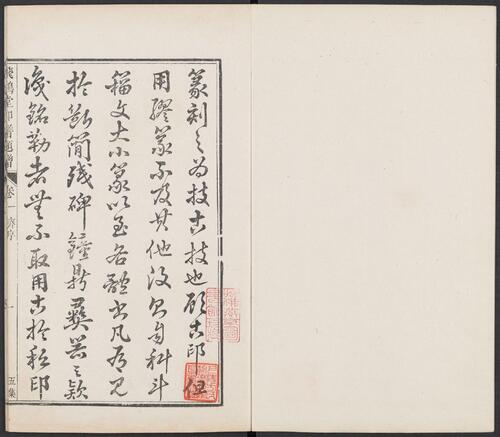 篆刻之為技古技也顧古印但
用繆篆不及其他汉以自科斗
籀文大小篆以至各體書凡有見
於斷簡殘碑鐘鼎彝器之欵
識銘勒者無不取用古於私印
飛鴻堂印譜
卷一
序
一
五集